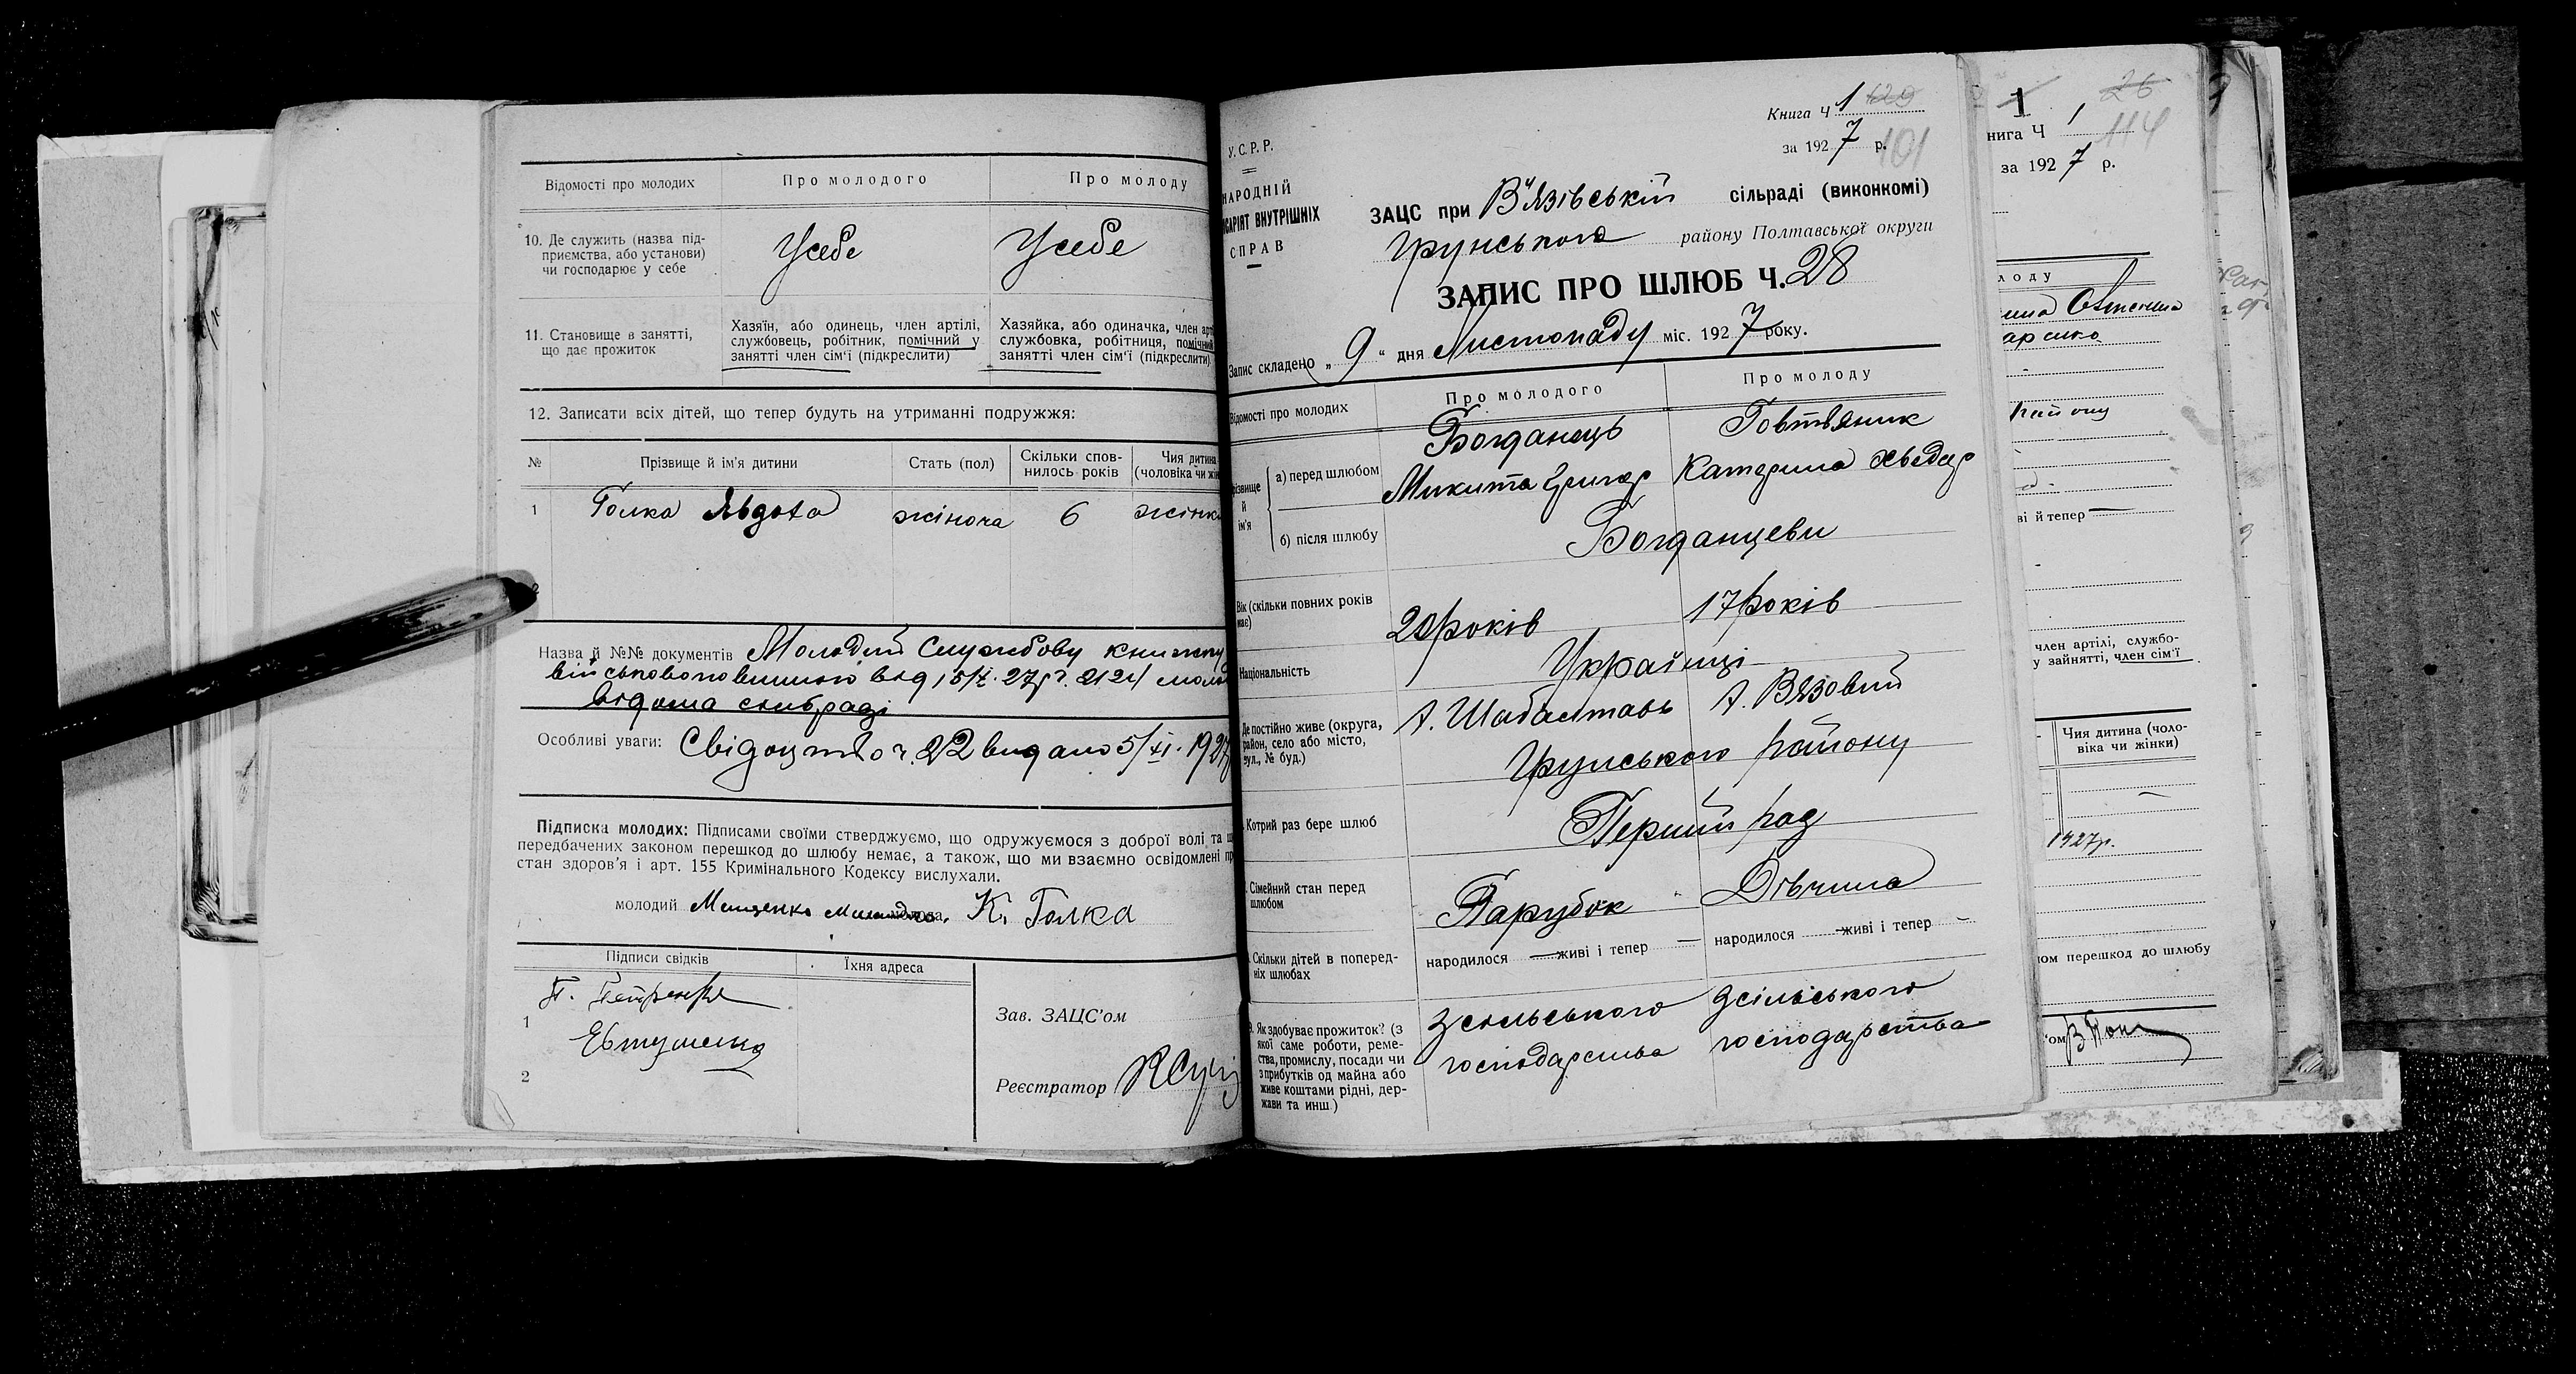 Відомості про молодих
Про молодого
Про молоду
10. Де служить (назва під-
приємства, або установи)
чи господарює у себе
Усебе
Усебе
11. Становище в занятті,
що дає прожиток
Хазяїн, або одинець, член артілі,
службовець, робітник, помічний у
занятті член сім'ї (підкреслити)
Хазяйка, або одиначка, член арт
службовка, робітниця, помічний
занятті член сім'ї (підкреслити)
12. Записати всіх дітей, що тепер будуть на утриманні подружжя:
№
Прізвище й ім'я дитини
Стать (пол)
Скільки спов-
нилось років
Чия дитина
(чоловіка чи жін
1
Голка Явдоха
жіноча
6
жінк
Назва й №№ документів Молодий Службову книжку
відома сільраді
Особливі уваги: Свідоцтво ч. 22 видано 5/XI. 1927
Підписка молодих: Підписами своїми стверджуємо, що одружуємося з доброї волі та
передбачених законом перешкод до шлюбу немає, а також, що ми взаємно освідомлені п
стан здоров'я і арт. 155 Кримінального Кодексу вислухали.
молодий
К. Голка
Підписи свідків
Їхня адреса
1
2
Зав. ЗАЦС'ом
Реєстратор
У.С.Р.Р.
НАРОДНІЙ
ВНУТРІШНІХ
СПРАВ
Книга Ч 1
за 1927 р.
101
ЗАЦС при В'язівській сільраді (виконкомі)
Грунського району Полтавської округи
ЗАПИС ПРО ШЛЮБ Ч. 28
Запис складено „9“ дня Листопаду міс. 1927 року.
Відомості про молодих
Про молодого
Про молоду
й
ім'я
а) перед шлюбом
Богданець
Микита Григор
Говтвяник
Катерина Хведор
б) після шлюбу
Богданцеви
Вік (скільки повних років
має)
20 років
17 років
Національність
Українці
Де постійно живе (округа,
район, село або місто,
вул., № буд.)
х. Шабалтаєь
х. Вязовий
Грунського району
Котрий раз бере шлюб
Перший раз
Сімейний стан перед
шлюбом
Парубок
Дівчина
Скільки дітей в поперед-
ніх шлюбах
народилося — живі і тепер —
народилося — живі і тепер —
9. Як здобуває прожиток? (з
якої саме роботи, реме-
ства, промислу, посади чи
з прибутків од майна або
живе коштами рідні, дер-
жави та инш.)
Зсільського
господарства
Зсільського
господарства
1
26
нига Ч 1
114
за 1927 р.
лоду
району
ві й тепер —
член артілі, службо-
у зайнятті, член сім'ї
Чия дитина (чоло-
віка чи жінки)
1927р.
ом перешкод до шлюбу
'ом